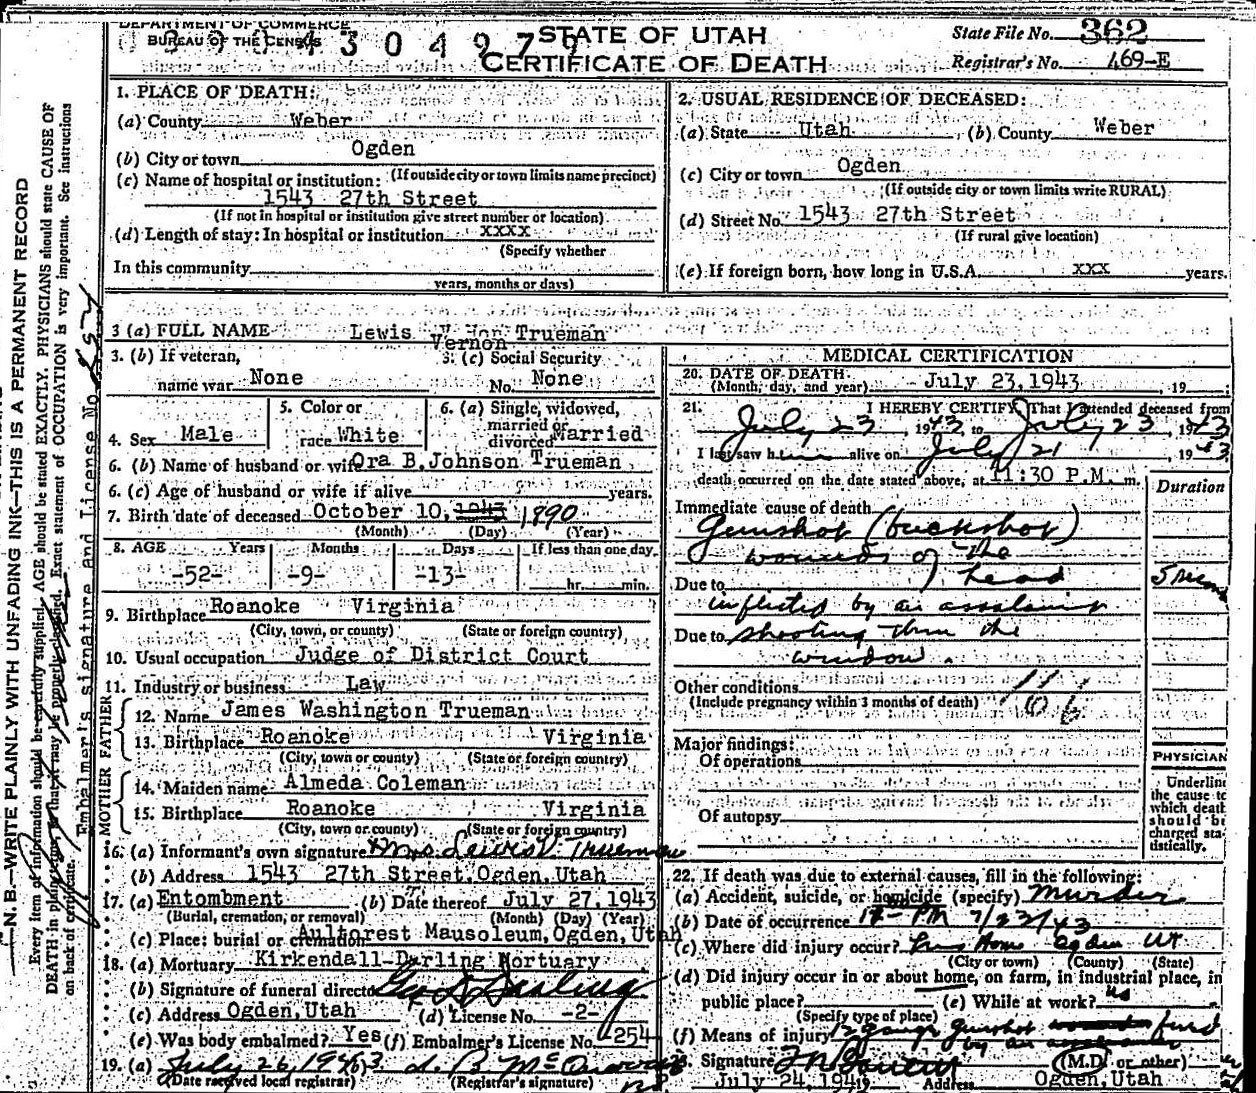 DEPARTMENT OF COMMERCE
BUREAU OF THE CENSUS
STATE OF UTAH
CERTIFICATE OF DEATH
State File No. 362
Registrar's No. 469-E
N. B.—WRITE PLAINLY WITH UNFADING INK—THIS IS A PERMANENT RECORD
Every item of information should be carefully supplied. AGE should be stated EXACTLY. PHYSICIANS should state CAUSE OF
DEATH in plain terms so that it may be properly classified. Exact statement of OCCUPATION is very important. See instructions
on back of certificate.
Embalmer's signature and License No.
1. PLACE OF DEATH:
(a) County Weber
(b) City or town Ogden
(If outside city or town limits name precinct)
(c) Name of hospital or institution:
1543 27th Street
(If not in hospital or institution give street number or location)
(d) Length of stay: In hospital or institution xxxx
(Specify whether
In this community
years, months or days)
2. USUAL RESIDENCE OF DECEASED:
(a) State Utah (b) County Weber
(c) City or town Ogden
(If outside city or town limits write RURAL)
(d) Street No. 1543 27th Street
(If rural give location)
(e) If foreign born, how long in U.S.A. xxx years.
3 (a) FULL NAME Lewis Vernon Trueman
3. (b) If veteran,
name war None
3. (c) Social Security
No. None
4. Sex Male
5. Color or
race White
6. (a) Single, widowed,
married or
divorced Married
6. (b) Name of husband or wife Ora B. Johnson Trueman
6. (c) Age of husband or wife if alive years.
7. Birth date of deceased October 10, 1943 1890
(Month) (Day) (Year)
8. AGE Years Months Days If less than one day
-52- -9- -13- hr. min.
9. Birthplace Roanoke Virginia
(City, town, or county) (State or foreign country)
10. Usual occupation Judge of District Court
11. Industry or business Law
FATHER
12. Name James Washington Trueman
13. Birthplace Roanoke Virginia
(City, town, or county) (State or foreign country)
MOTHER
14. Maiden name Almeda Coleman
15. Birthplace Roanoke Virginia
(City, town or county) (State or foreign country)
16. (a) Informant's own signature Mrs. Lewis V. Trueman
(b) Address 1543 27th Street, Ogden, Utah
17. (a) Entombment (b) Date thereof July 27, 1943
(Burial, cremation, or removal) (Month) (Day) (Year)
(c) Place: burial or cremation Aultorest Mausoleum, Ogden, Utah
18. (a) Mortuary Kirkendall-Darling Mortuary
(b) Signature of funeral director Geo S Darling
(c) Address Ogden, Utah (d) License No. -2-
(e) Was body embalmed? Yes (f) Embalmer's License No. 254
19. (a) July 26, 1943
(Date received local registrar) (Registrar's signature)
MEDICAL CERTIFICATION
20. DATE OF DEATH
(Month, day, and year) July 23, 1943, 19
21. I HEREBY CERTIFY, That I attended deceased from
July 23, 1943 to July 23, 1943
I last saw him alive on July 21 1943
death occurred on the date stated above, at 11:30 P.M. m.
Duration
Immediate cause of death
Gunshot (buckshot)
wounds of the
head
Due to
inflicted by an assailant
Due to shooting thru the
window.
Other conditions
(Include pregnancy within 3 months of death)
Major findings:
Of operations
Of autopsy
PHYSICIAN
Underline
the cause to
which death
should be
charged sta-
tistically.
22. If death was due to external causes, fill in the following:
(a) Accident, suicide, or homicide (specify) Murder
(b) Date of occurrence PM 7/23/43
(c) Where did injury occur? Home Ogden Ut
(City or town) (County) (State)
(d) Did injury occur in or about home, on farm, in industrial place, in
public place? (e) While at work? no
(Specify type of place)
(f) Means of injury 12 gauge gunshot fired
by an assailant
23. Signature (M.D. or other)
July 24, 194 Address Ogden, Utah